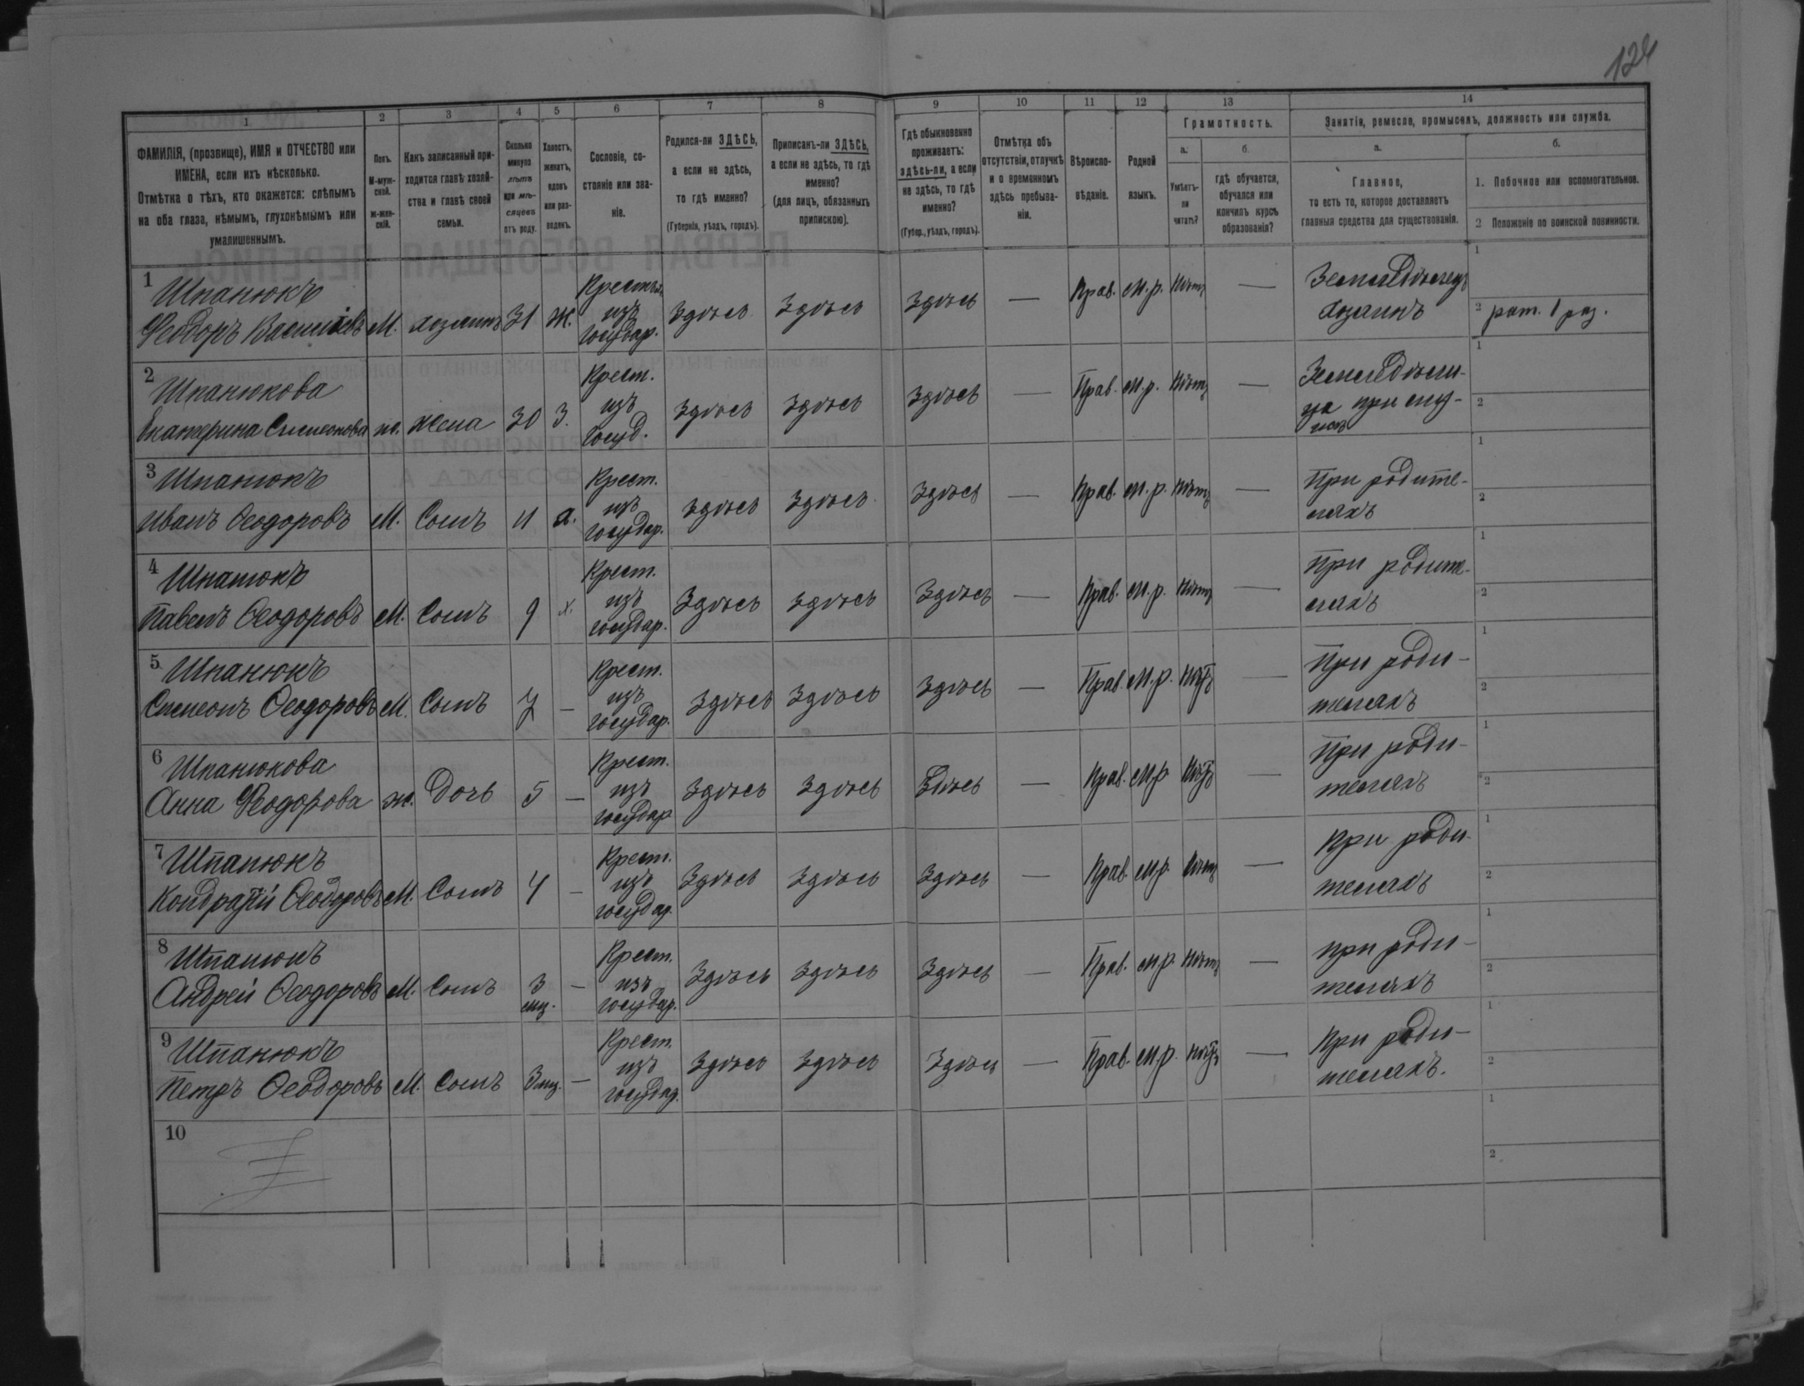 124
1 2 3 4 5 6 7 8 9 10 11 12 13 14
ФАМИЛІЯ, (прозвище), ИМЯ и ОТЧЕСТВО или
ИМЕНА, если ихъ нѣсколько.
Отмѣтка о тѣхъ, кто окажется: слѣпымъ
на оба глаза, нѣмымъ, глухонѣмымъ или
умалишеннымъ.
Полъ.
М-муж-
ской.
ж-жен-
скій.
Какъ записанный при-
ходится главѣ хозяй-
ства и главѣ своей
семьи.
Сколько
минуло
лѣтъ
или мѣ-
сяцевъ
отъ роду.
Холостъ,
женатъ,
вдовъ
или раз-
веденъ.
Сословіе, со-
стояніе или зва-
ніе.
Родился-ли ЗДѢСЬ,
а если не здѣсь,
то гдѣ именно?
(Губернія, уѣздъ, городъ).
Приписанъ-ли ЗДѢСЬ,
а если не здѣсь, то гдѣ
именно?
(для лицъ, обязанныхъ
припискою).
Гдѣ обыкновенно
проживаетъ:
здѣсь-ли, а если
не здѣсь, то гдѣ
именно?
(Губер., уѣздъ, городъ).
Отмѣтка объ
отсутствіи, отлучкѣ
и о временномъ
здѣсь пребыва-
ніи.
Вѣроиспо-
вѣданіе.
Родной
языкъ.
Грамотность.
а.
Умѣетъ-
ли
читать?
б.
гдѣ обучается,
обучался или
кончилъ курсъ
образованія?
Занятія, ремесло, промыселъ, должность или служба.
а.
Главное,
то есть то, которое доставляетъ
главныя средства для существованія.
б.
1. Побочное или вспомогательное.
2 Положеніе по воинской повинности.
1 Шпанюкъ
Феодоръ Васильевъ М. хозяинъ 31 Ж. Крестьян. изъ государ. Здѣсь Здѣсь Здѣсь — Прав. М.р. Нѣтъ — Земледѣлецъ
хозяинъ
1
2 рат. 1 раз.
2 Шпанюкова
Екатерина Симеонова ж. жена 30 З. Крест. изъ госуд. Здѣсь Здѣсь Здѣсь — Прав. М.р. Нѣтъ — Земледѣли-
ца при му-
жѣ
1
2
3 Шпанюкъ
Иванъ Феодоровъ М. Сынъ 11 х. Крест. изъ государ. Здѣсь Здѣсь Здѣсь — Прав. М.р. Нѣтъ — При родите-
ляхъ
1
2
4 Шпанюкъ
Павелъ Феодоровъ М. Сынъ 9 х. Крест. изъ государ. Здѣсь Здѣсь Здѣсь — Прав. М.р. Нѣтъ — При родите-
ляхъ
1
2
5 Шпанюкъ
Симеонъ Феодоровъ М. Сынъ 7 — Крест. изъ государ. Здѣсь Здѣсь Здѣсь — Прав. М.р. Нѣтъ — При роди-
теляхъ
1
2
6 Шпанюкова
Анна Феодорова ж. Дочь 5 — Крест. изъ государ Здѣсь Здѣсь Здѣсь — Прав. М.р. Нѣтъ — При роди-
теляхъ
1
2
7 Шпанюкъ
Кондратій Феодоровъ М. Сынъ 4 — Крест. изъ государ. Здѣсь Здѣсь Здѣсь — Прав. М.р. Нѣтъ — При роди-
теляхъ
1
2
8 Шпанюкъ
Андрей Феодоровъ М. Сынъ 3 мц. — Крест. изъ государ. Здѣсь Здѣсь Здѣсь — Прав. М.р. Нѣтъ — при роди-
теляхъ
1
2
9 Шпанюкъ
Петръ Феодоровъ М. Сынъ 3 мц. — Крест. изъ государ. Здѣсь Здѣсь Здѣсь — Прав. М.р. Нѣтъ — При роди-
теляхъ.
1
2
10
1
2